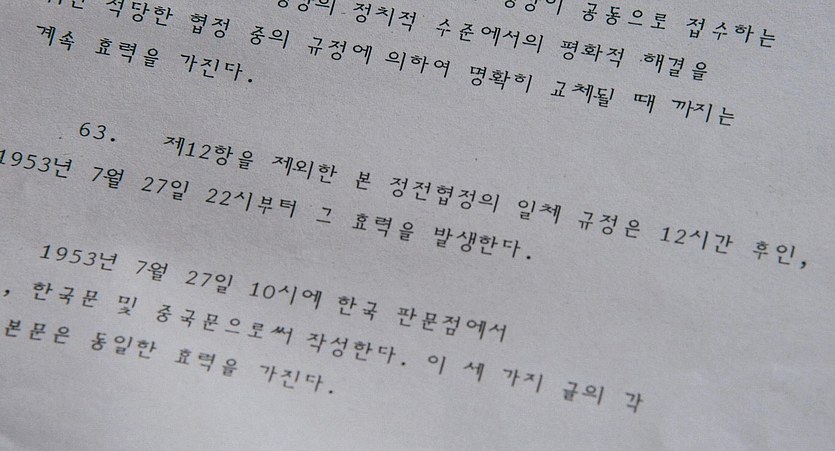 정치적 수준에서의 평화적 해결을
적당한 협정 중의 규정에 의하여 명확히 교체될 때 까지는
계속 효력을 가진다.
63. 제12항을 제외한 본 정전협정의 일체 규정은 12시간 후인,
1953년 7월 27일 22시부터 그 효력을 발생한다.
1953년 7월 27일 10시에 한국 판문점에서
, 한국문 및 중국문으로써 작성한다. 이 세 가지 글의 각
본문은 동일한 효력을 가진다.